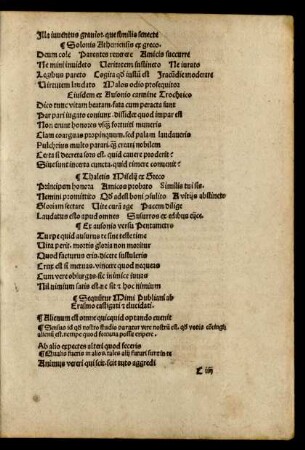 Illa iuventus gravior. que similis senecte
¶ Solonis Atheniensis ex greco.
Deum cole Parentes reverere Amicis succurre
Ne mini invideto Veritatem sustineto Ne iurato
Legibus pareto Cogita qd iustū est Iracūdie moderare
Virtutem laudato Malos odio prosequitor
Eiusdem ex Ausonio carmine Trochaico
Dico tunc vitam beatam. fata cum peracta sunt
Par pari iugato coniunx. dissidet quod impar est
Non erunt honores unq̄ fortuiti muneris
Clam coarguas propinquum. sed palam laudaveris
Pulchrius multo parari. q̄ creari nobilem
Certa si decreta fors est. quid cavere proderit?
Sive sunt incerta cuncta. quid timere convenit?
¶ Thaletis Milesij ex Greco
Principem honora Amicos probato Similis tui sis.
Nemini promittito Qd adest boni posuito A vitijs abstineto
Gloriam sectare Vite curā age Pacem dilige
Laudatus esto apud omnes Susurronē ex edibus eijce.
¶ Ex ausonio versu Pentametro
Turpe quid ausurus te sine teste time
Vita perit. mortis gloria non moritur
Quod facturus eris. dicere sustuleris
Crux est si metuas. vincere quod nequeas
Cum vere obiurges. sic inimice iuvas
Nil nimium satis est. ne sit et hoc nimium
¶ Sequūtur Mimi Publiani ab
Erasmo castigati et elucidati.
¶ Alienum est omne quicquid optando evenit
¶ Sensus id qd nostro studio paratur vere nostrū est. qd votis cōtingit
alienū est. et que quod fortuna possit eripere.
Ab alio expectes alteri quod feceris
¶ Qualis fueris in alios. tales alij futuri sint in te
Animus vereri qui scit. scit tuto aggredi
C iiij